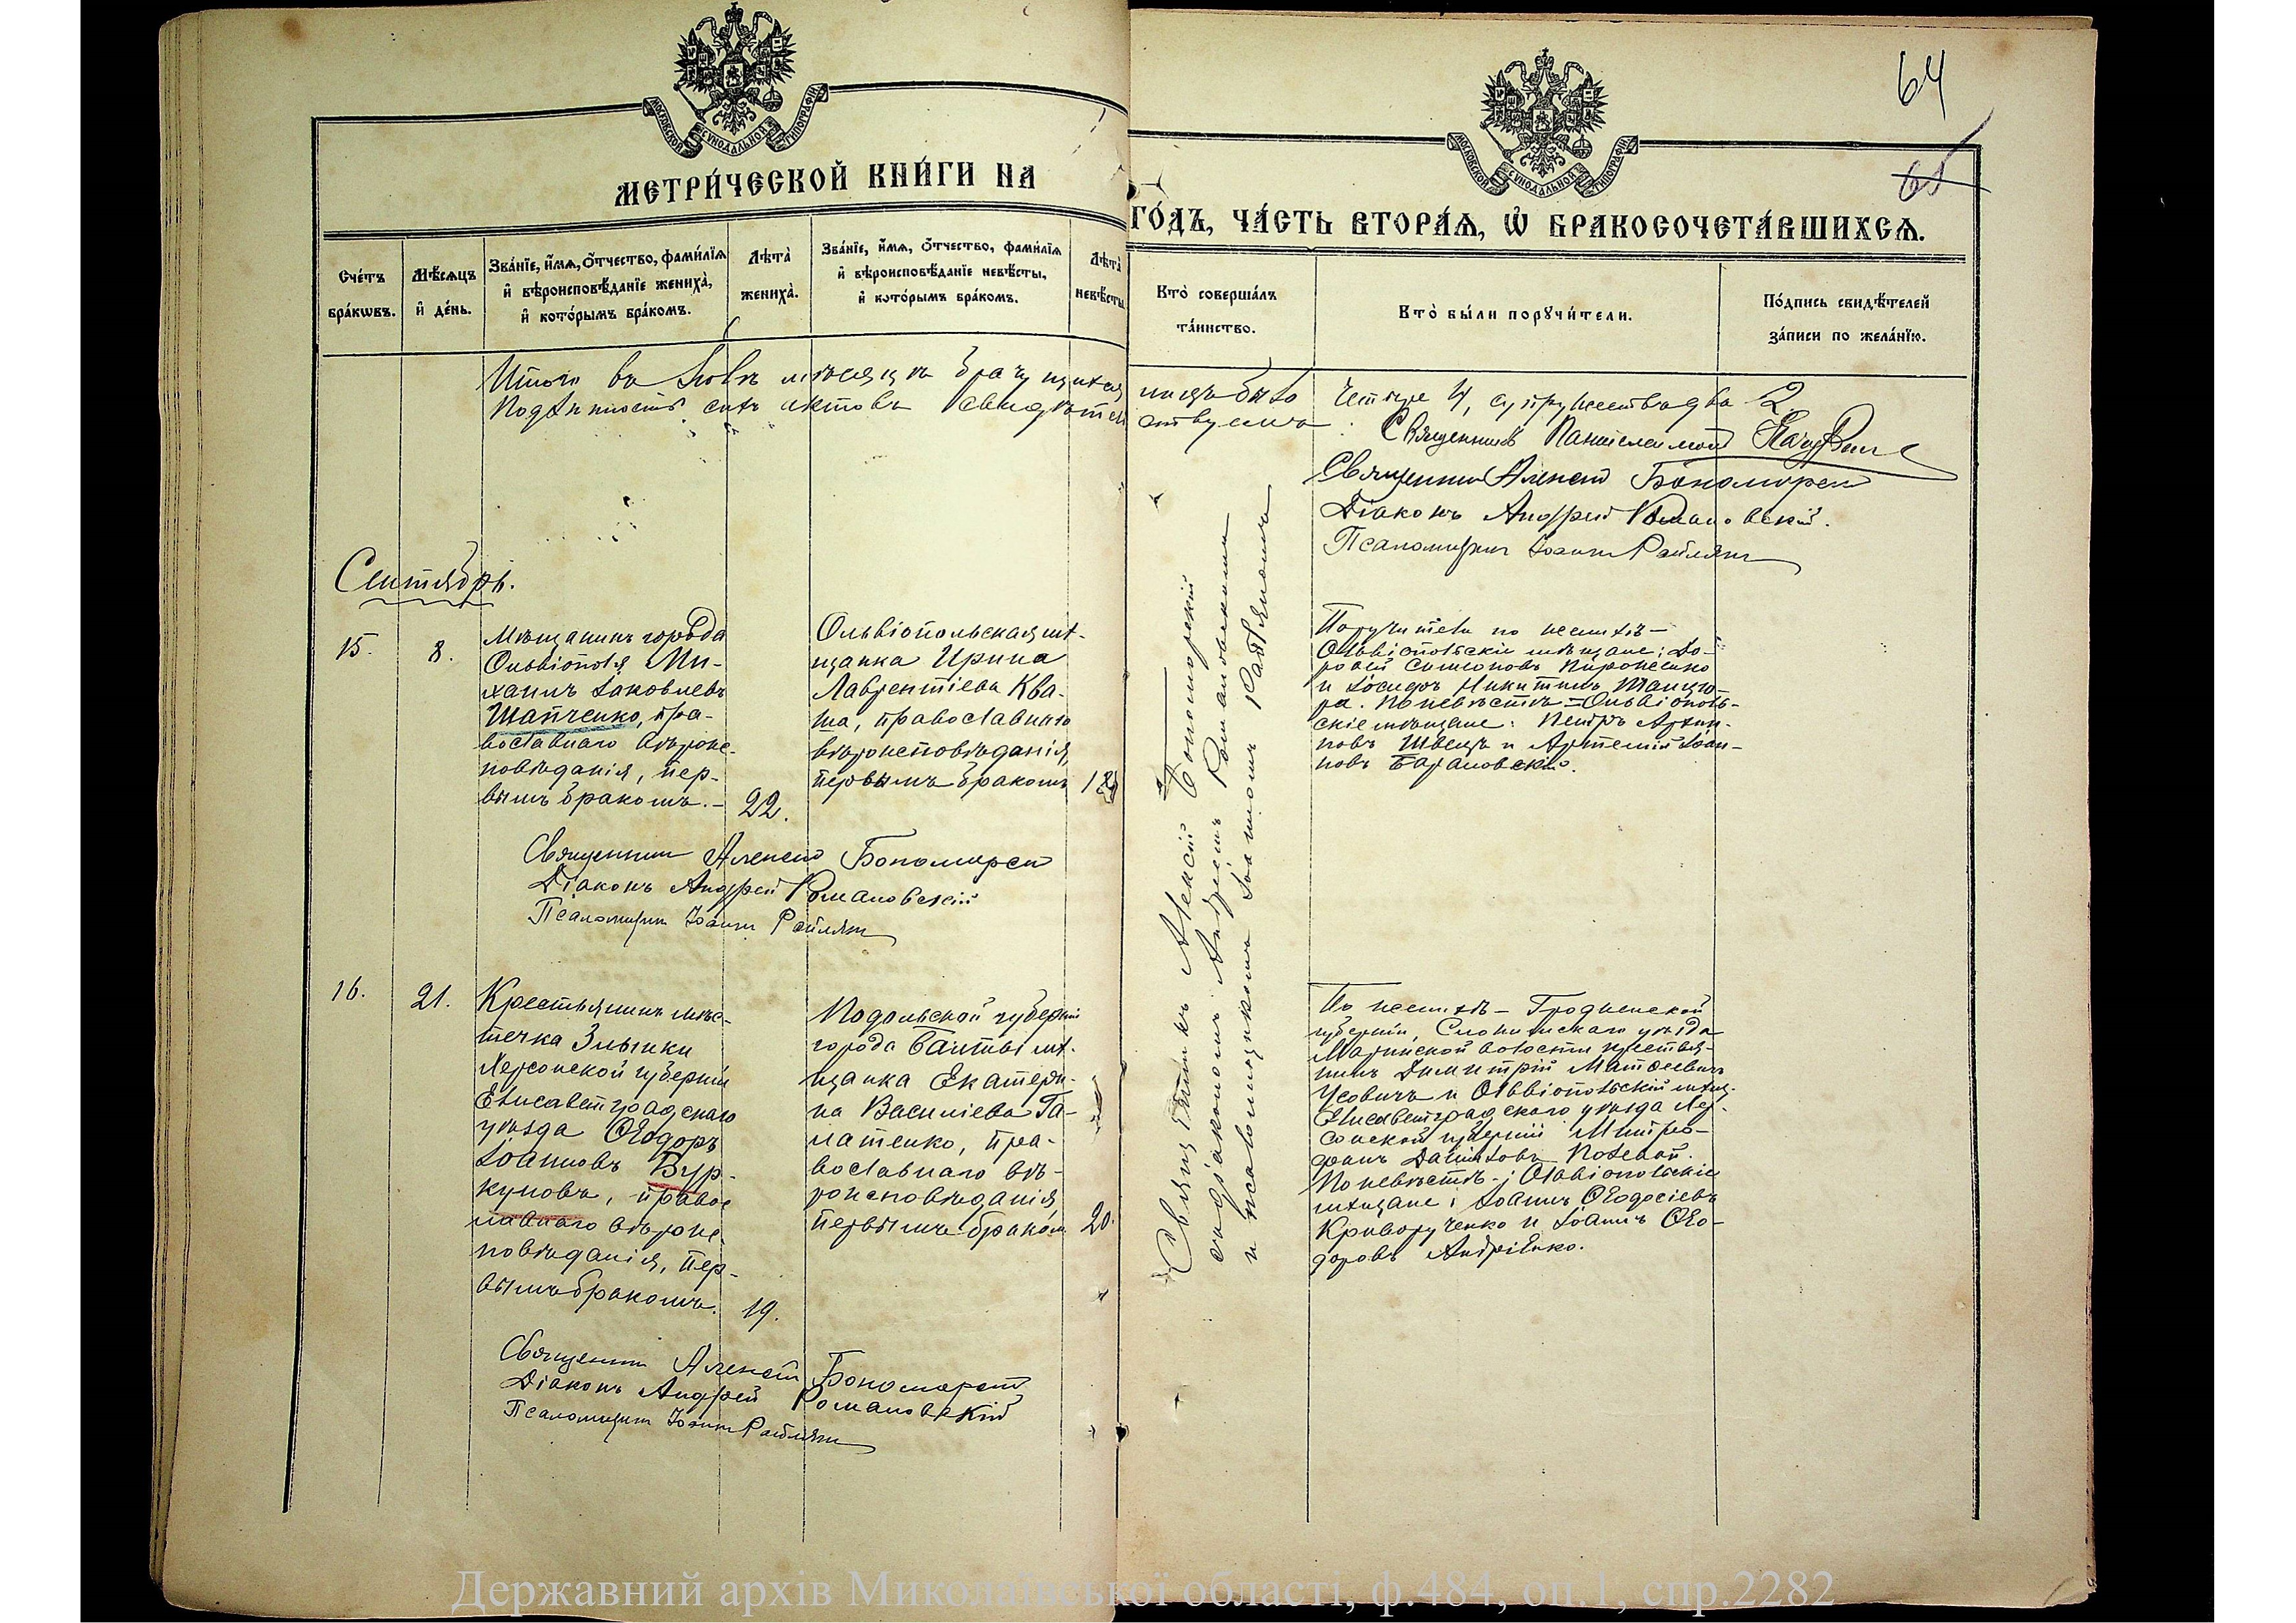 64
65
МОСКОВСКОЙ СУНОДАЛЬНОЙ ТИПОГРАФІИ
МОСКОВСКОЙ СУНОДАЛЬНОЙ ТИПОГРАФІИ
МЕТРИ́ЧЕСКОЙ КНИ́ГИ НА
ГО́ДЪ, ЧА́СТЬ ВТОРА́Ѧ, Ѡ҆ БРАКОСОЧЕТА́ВШИХСѦ.
Сче́тъ
бра́кѡвъ.
Мѣ́сѧцъ
и҆ де́нь.
Зва́нїе, и҆́мѧ, ѻ҆́тчество, фами́лїѧ
и҆ вѣроисповѣ́данїе жениха̀,
и҆ кото́рымъ бра́комъ.
Лѣта̀
жениха̀.
Зва́нїе, и҆́мѧ, ѻ҆́тчество, фами́лїѧ
и҆ вѣроисповѣ́данїе невѣ́сты,
и҆ кото́рымъ бра́комъ.
Лѣта̀
невѣ́сты
Кто̀ соверша́лъ
та́инство.
Кто̀ бы́ли порꙋчи́тели.
По́дпись свидѣ́телей
за́писи по жела́нїю.
Итого въ Іюлѣ мѣсяцѣ брачущихся
лицъ было четыре 4, супружества два 2.
Подлинность сихъ актовъ свидѣтель
ствуемъ:
Священникъ Пантелеимонъ
Священникъ Алексій Бономорскій
Діаконъ Андрей Романовскій.
Псаломщикъ Іоаннъ Райлянъ
Сентябрь.
15.
8.
Мѣщанинъ города
Ольвіополя Ми-
хаилъ Іаковлевъ
Шапченко, пра-
вославнаго вѣроис-
повѣданія, пер-
вымъ бракомъ.-
22.
Ольвіопольская мѣ-
щанка Ирина
Лаврентіева Ква-
ша, православнаго
вѣроисповѣданія,
первымъ бракомъ
Священникъ Алексій Бономорскій
Діаконъ Андрей Романовскій
Псаломщикъ Іоаннъ Райлянъ
Поручители по женихѣ-
Ольвіопольскіе мѣщане: До-
рофей Симеоновъ Пироженко
и Іосифъ Никитинъ
По невѣстѣ = Ольвіополь-
скіе мѣщане: Петръ Архип-
повъ Швецъ и Артемій Іоан-
новъ Барановскій.
Священникъ Алексій Бономорскій
съ діакономъ Андреемъ Романовскимъ
и псаломщикомъ Іоанномъ Райляномъ
16.
21.
Крестьянинъ мѣс-
течка Злынки
Херсонской губерніи
Елисаветградскаго
уѣзда Ѳеодоръ
Іоанновъ Бур-
куновъ, правос
лавнаго вѣроис
повѣданія, пер-
вымъ бракомъ.
19.
Подольской губерніи
города Балты мѣ-
щанка Екатери-
на Василіева Га-
латенко, пра-
вославнаго вѣ-
роисповѣданія,
первымъ бракомъ
20.
Священникъ Алексій Бономорскій
Діаконъ Андрей Романовскій
Псаломщикъ Іоаннъ Райлянъ
По женихѣ - Гродненской
губерніи, Слонимскаго уѣзда
Маринской волости крестья-
нинъ Димитрій Матѳеевичъ
Усовичъ и Ольвіопольскій мѣщ.
Елисаветградскаго уѣзда Хер-
сонской губерніи Митро-
фанъ Даниловъ Полевой.
По невѣстѣ-; Ольвіопольскіе
мѣщане: Іоаннъ Ѳеодосіевъ
Криворученко и Іоаннъ Ѳео-
доровъ Андріенко.
Державний архів Миколаївської області, ф.484, оп.1, спр.2282